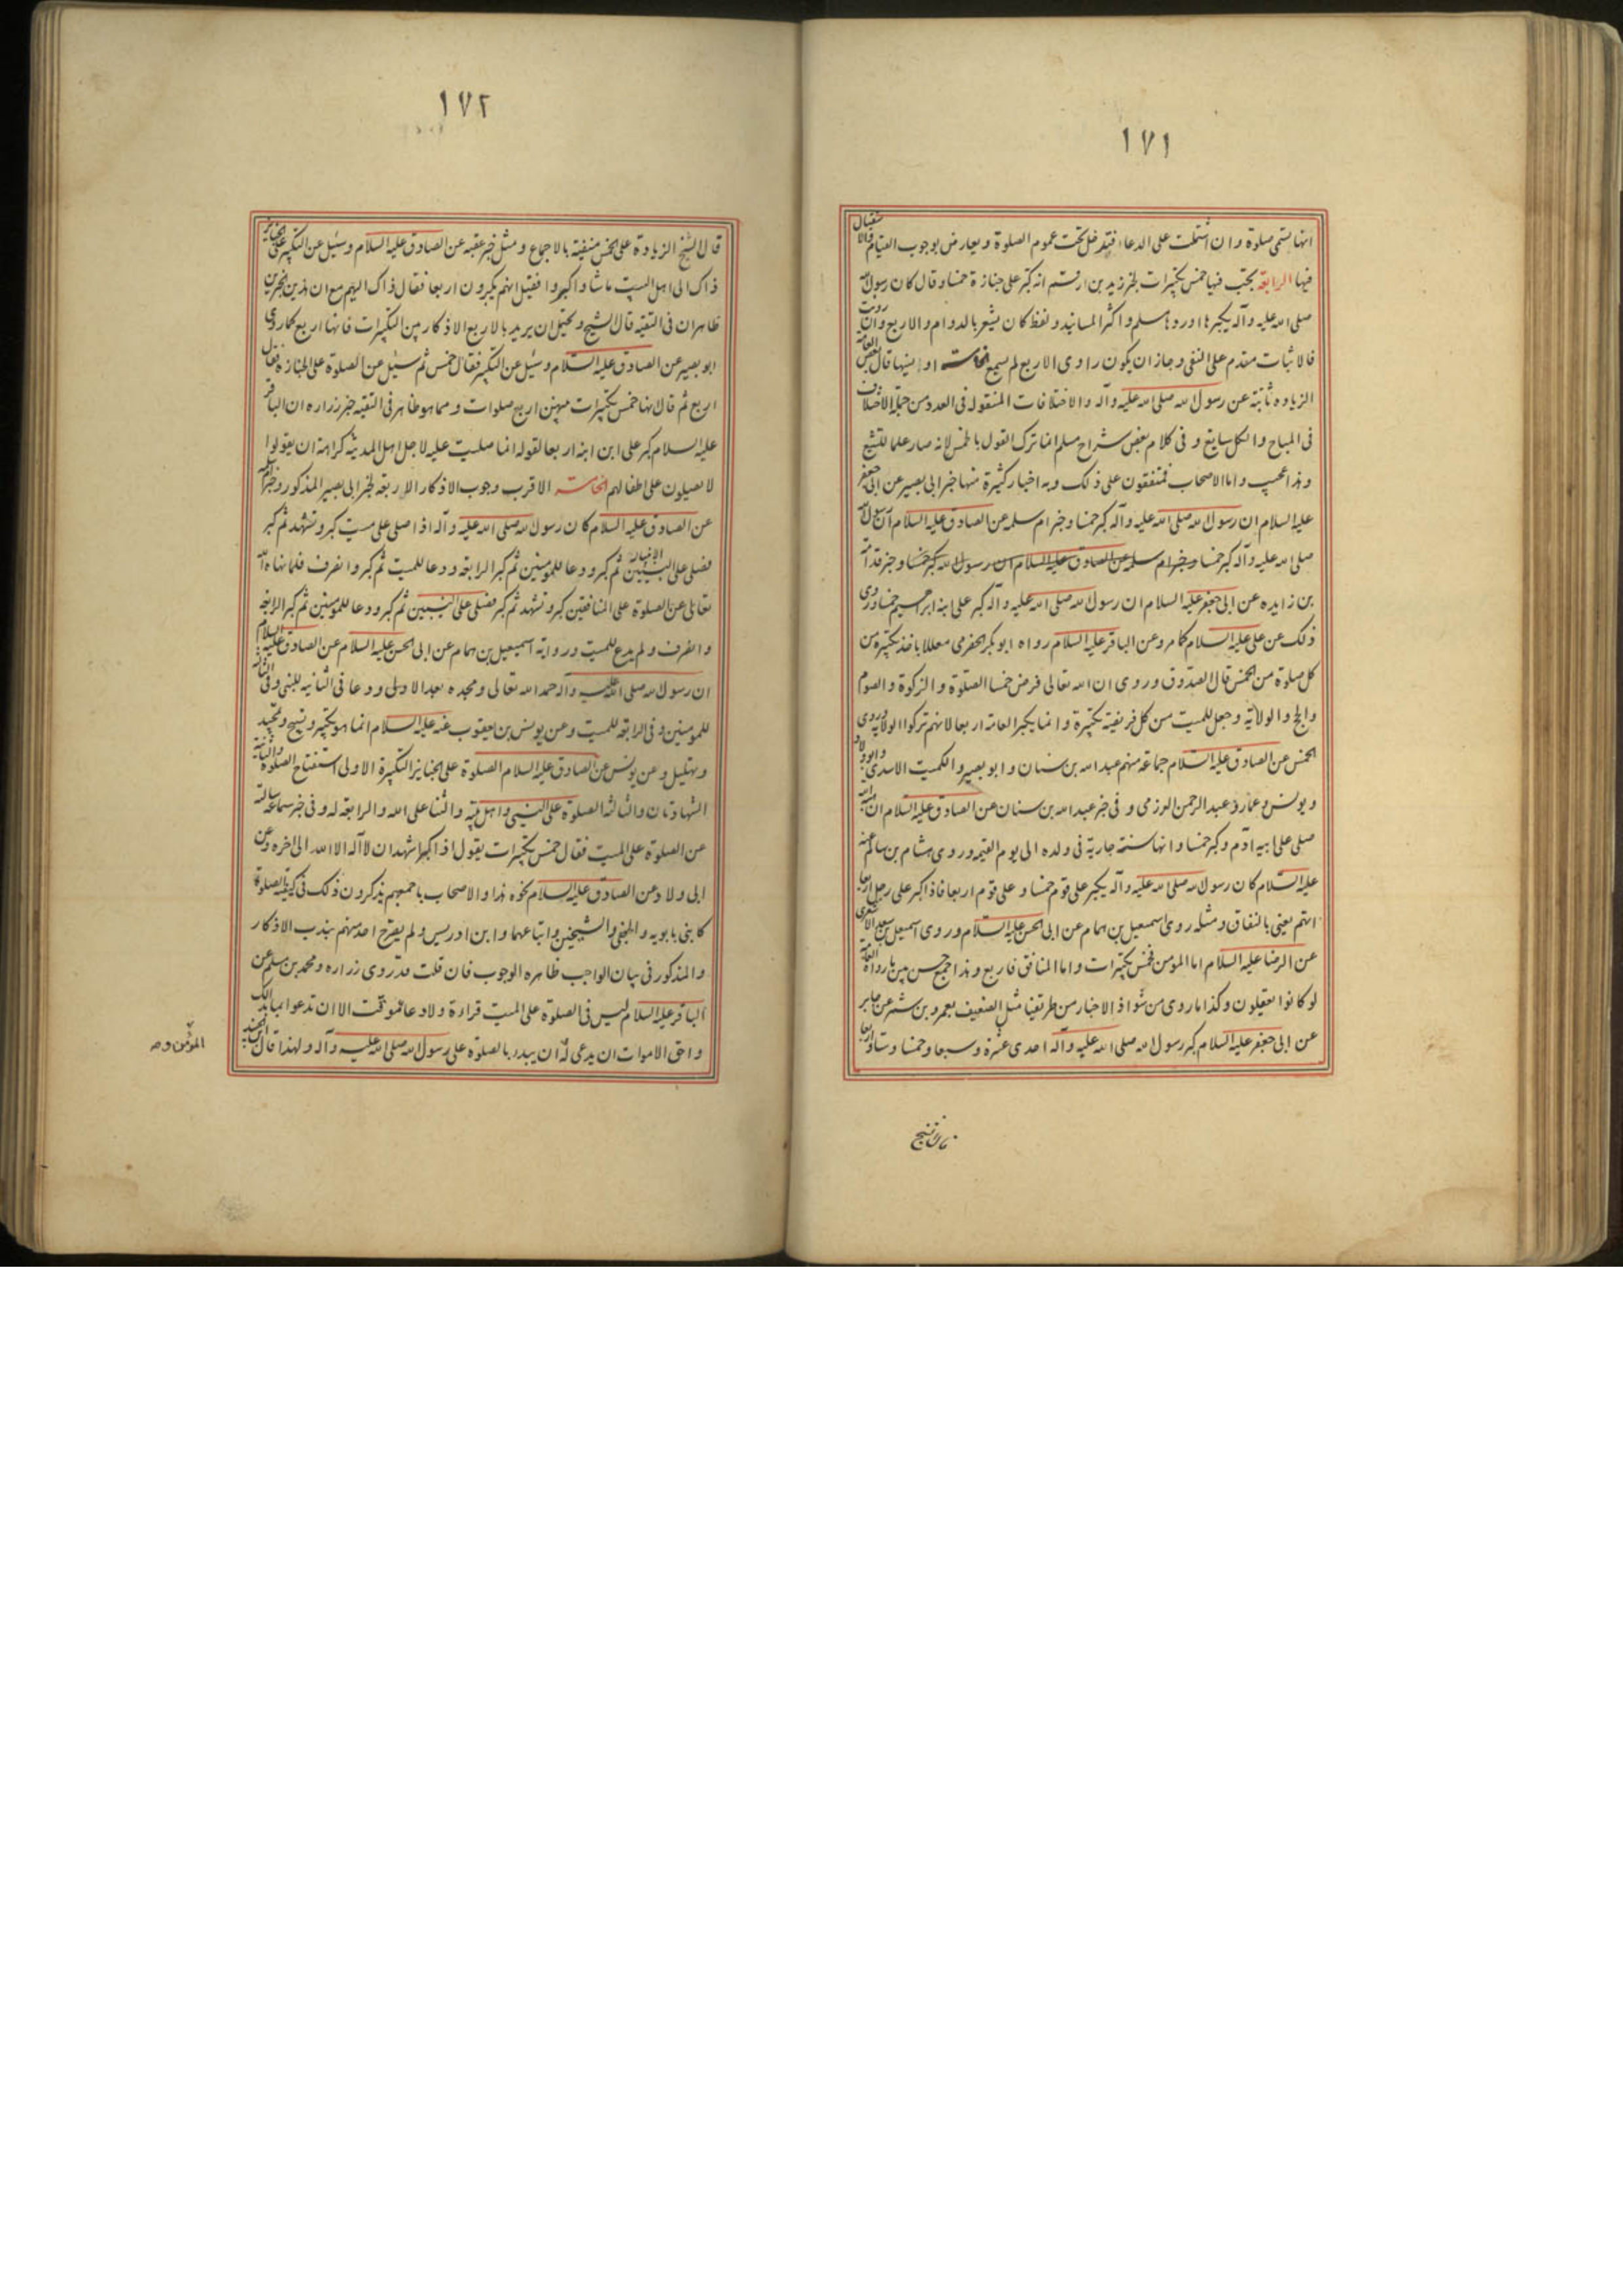 ١٧١
انها يسمى صلوة وان اشتملت على الدعاء فيدخل تحت عموم الصلوة ويعارض بوجوب القيام والاستقبال
فيها الرابعة يجب فيها خمس تكبيرات لخبر زيد بن ارقم انه كبر على جنازة خمسا وقال كان رسول الله
صلى الله عليه وآله يكبرها اوردها مسلم واكثر المسانيد ولفظ كان يشعر بالدوام والاربع وان رويت
فالاثبات مقدم على النفى وجاز ان يكون راوى الاربع لم يسمع الخامسة او نسيها قال بعض العامة
الزيادة ثابتة عن رسول الله صلى الله عليه وآله والاختلافات المنقولة فى العدد من جملة الاختلاف
فى المباح والكل سايغ و فى كلام بعض شراح مسلم انما ترك القول بالخمس لانه صار علما للتشيع
وهذا عجيب واما الاصحاب فمتفقون على ذلك وبه اخبار كثيرة منها خبر ابى بصير عن ابى جعفر
عليه السلام ان رسول الله صلى الله عليه وآله كبر خمسا وخبر ام سلمه عن الصادق عليه السلام ان رسول الله
صلى الله عليه وآله كبر خمسا وخبر ام سلمه عن الصادق عليه السلام ان رسول الله كبر خمسا وخبر قدامة
بن زايده عن ابى جعفر عليه السلام ان رسول الله صلى الله عليه وآله كبر على ابنه ابراهيم خمسا وروى
ذلك عن على عليه السلام كما مر وعن الباقر عليه السلام رواه ابو بكر الحضرمى معللا باخذ تكبيرة من
كل صلوة من الخمس قال الصدوق وروى ان الله تعالى فرض خمسا الصلوة والزكوة والصوم
والحج والولاية وجعل للميت من كل فريضة تكبيرة وانما يكبر العامة اربعا لانهم تركوا الولاية وروى
الخمس عن الصادق عليه السلام جماعة منهم عبد الله بن سنان وابو بصير والكميت الاسدى وابو ولاد
ويونس وعمار وعبد الرحمن العرزمى و فى خبر عبد الله بن سنان عن الصادق عليه السلام ان هبة الله
صلى على ابيه آدم وكبر خمسا وانها سنة جارية فى ولده الى يوم القيمه وروى هشام بن سالم عنه
عليه السلام كان رسول الله صلى الله عليه وآله يكبر على قوم خمسا وعلى قوم اربعا فاذا كبر على رجل اربعا
اتهم يعنى بالنفاق ومثله روى اسمعيل بن همام عن ابى الحسن عليه السلام وروى اسمعيل بن سعد الاشعرى
عن الرضا عليه السلام اما المؤمن فخمس تكبيرات واما المنافق فاربع وهذا جمع حسن بين ما رواه العامة
لو كانوا يعقلون وكذا ما روى من شواذ الاخبار من طريقنا مثل الضعيف بعمرو بن شمر عن جابر
عن ابى جعفر عليه السلام كبر رسول الله صلى الله عليه وآله احدى عشرة وسبعا وخمسا وستا واربعا
قال الشيخ
١٧٢
قال الشيخ الزيادة على الخمس منفية بالاجماع ومثل خبر عقبه عن الصادق عليه السلام وسئل عن التكبير على الجنايز
ذاك الى اهل الميت ما شاؤا كبروا فقيل انهم يكبرون اربعا فقال ذاك اليهم مع ان هذين الخبرين
ظاهران فى التقيه قال الشيخ ويحتمل ان يريد بالاربع الاذكار بين التكبيرات فانها اربع كما روى
ابو بصير عن الصادق عليه السلام وسئل عن التكبير فقال خمس ثم سئل عن الصلوة على الجنازة فقال
اربع ثم قال انها خمس تكبيرات بينهن اربع صلوات ومما هو ظاهر فى التقيه خبر زراره ان الباقر
عليه السلام كبر على ابن ابنه اربعا لقوله انما صليت عليه لاجل اهل المدينة كراهة ان يقولوا
لا يصلون على اطفالهم الخامسة الاقرب وجوب الاذكار الاربعة لخبر ابى بصير المذكور وخبر ام سلمه
عن الصادق عليه السلام كان رسول الله صلى الله عليه وآله اذا صلى على ميت كبر وتشهد ثم كبر
فصلى على النبيين ثم كبر ودعا للمؤمنين ثم كبر الرابعة ودعا للميت ثم كبر وانصرف فلما نهاه الله
تعالى عن الصلوة على المنافقين كبر وتشهد ثم كبر فصلى على النبيين ثم كبر ودعا للمؤمنين ثم كبر الرابعة
وانصرف ولم يدع للميت ورواية اسمعيل بن همام عن ابى الحسن عليه السلام عن الصادق عليه السلام
ان رسول الله صلى الله عليه وآله حمد الله تعالى ومجده بعد الاولى ودعا فى الثانيه للنبى وفى الثالثة
للمؤمنين وفى الرابعة للميت وعن يونس بن يعقوب عنه عليه السلام انما هو تكبير وتسبيح وتحميد
وتهليل وعن يونس عن الصادق عليه السلام الصلوة على الجنايز التكبيرة الاولى استفتاح الصلوة والثانية
الشهادتان والثالثة الصلوة على النبى واهل بيته والثناء على الله والرابعة له وفى خبر سماعة سالته
عن الصلوة على الميت فقال خمس تكبيرات يقول اذا كبر اشهد ان لا آله الا الله الى اخره وعن
ابى ولاد عن الصادق عليه السلام نحوه هذا والاصحاب باجمعهم يذكرون ذلك فى كيفية الصلوة
كابنى بابويه والجعفى والشيخين واتباعهما وابن ادريس ولم يصرح احد منهم بندب الاذكار
والمذكور فى بيان الواجب ظاهره الوجوب فان قلت قد روى زراره ومحمد بن مسلم عن
الباقر عليه السلام ليس فى الصلوة على الميت قراءة ولا دعاء موقت الا ان تدعوا بما بدا لك
واحق الاموات ان يدعى له ان يبدء بالصلوة على رسول الله صلى الله عليه وآله ولهذا قال ابن الجنيد